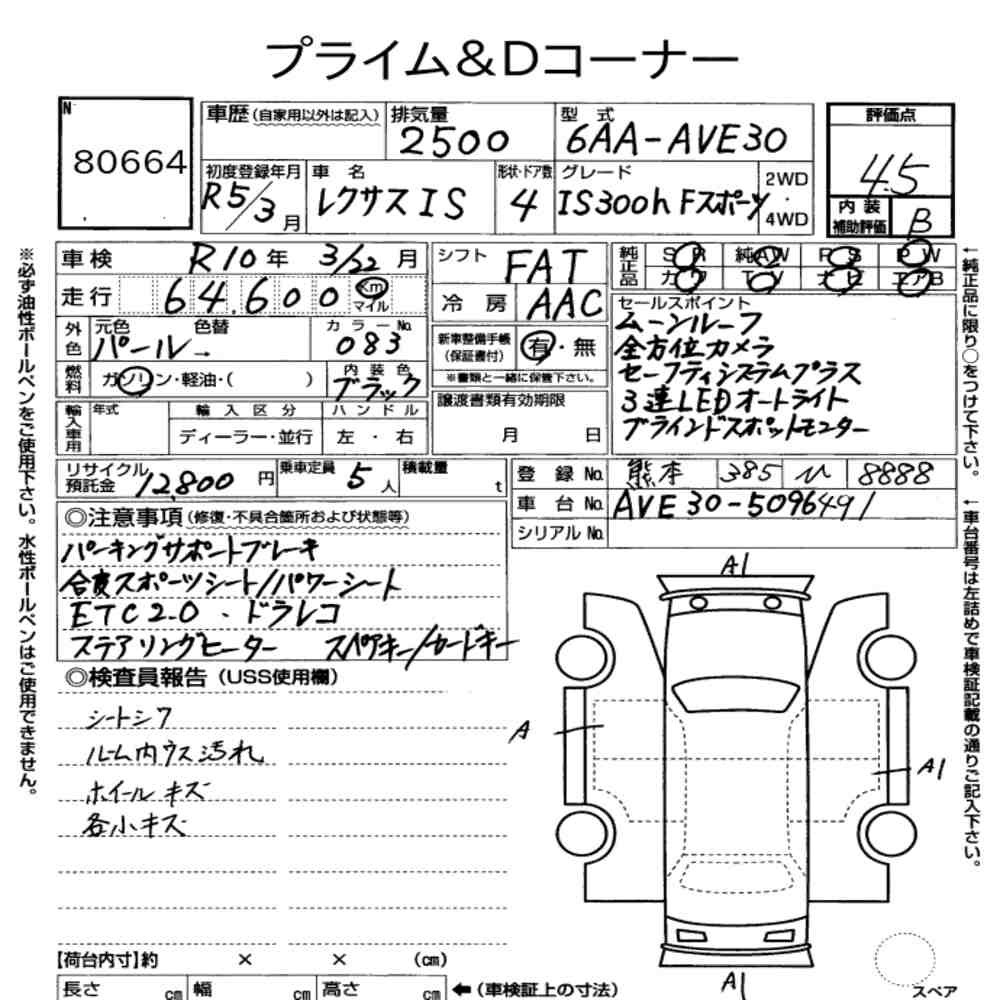 プライム&Dコーナー
N
80664
車歴(自家用以外は記入)
排気量
2500
型式
6AA-AVE30
評価点
4.5
初度登録年月
R5/3月
車名
レクサスIS
形状・ドア数
4
グレード
IS300h Fスポーツ
2WD
・
4WD
内装
補助評価
B
車検
R10年 3/22月
シフト
FAT
純正品
SR
純AW
PS
PW
カワ
TV
ナビ
エアB
走行
64,600
km
マイル
冷房
AAC
セールスポイント
ムーンルーフ
全方位カメラ
セーフティシステムプラス
3連LEDオートライト
ブラインドスポットモニター
外色
元色
色替
パール→
カラーNo.
083
新車整備手帳
(保証書付)
有・無
※書類と一緒に保管下さい。
燃料
ガソリン・軽油・( )
内装色
ブラック
譲渡書類有効期限
月 日
輸入車用
年式
輸入区分
ディーラー・並行
ハンドル
左・右
リサイクル
預託金
12,800円
乗車定員
5人
積載量
t
登録No.
熊本 385 8888
車台No.
AVE30-5096491
シリアルNo.
◎注意事項(修復・不具合箇所および状態等)
パーキングサポートブレーキ
合皮スポーツシート/パワーシート
ETC2.0・ドラレコ
ステアリングヒーター スペアキー/カードキー
◎検査員報告(USS使用欄)
シートシワ
ルーム内ウス汚れ
ホイールキズ
各小キズ
A1
A
A1
A1
スペア
【荷台内寸】約 × × (cm)
長さ cm 幅 cm 高さ cm ←(車検証上の寸法)
※必ず油性ボールペンをご使用下さい。水性ボールペンはご使用できません。
←純正品に限り○をつけて下さい。
←車台番号は左詰めで車検証記載の通りご記入下さい。